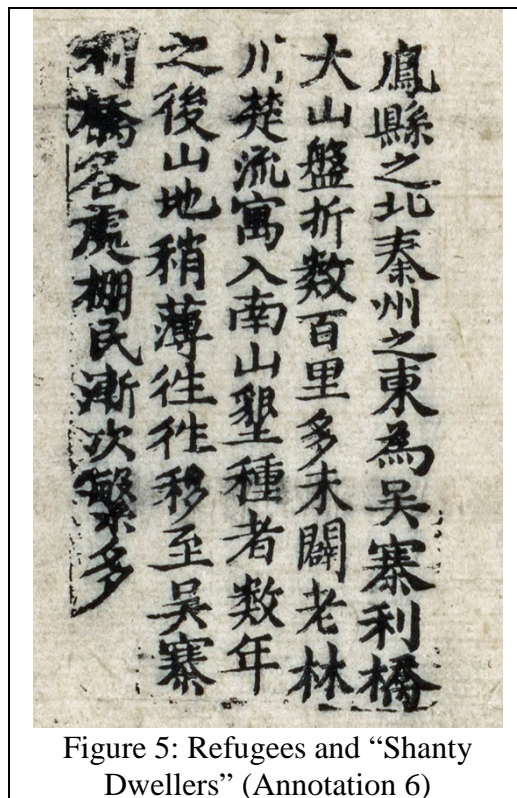 鳳縣之北秦州之東為吳寨利橋
大山盤折數百里多未闢老林
川楚流寓入南山墾種者数年
之後山地稍薄徃徃移至吳寨
利橋各處棚民漸次繁多
Figure 5: Refugees and “Shanty
Dwellers” (Annotation 6)